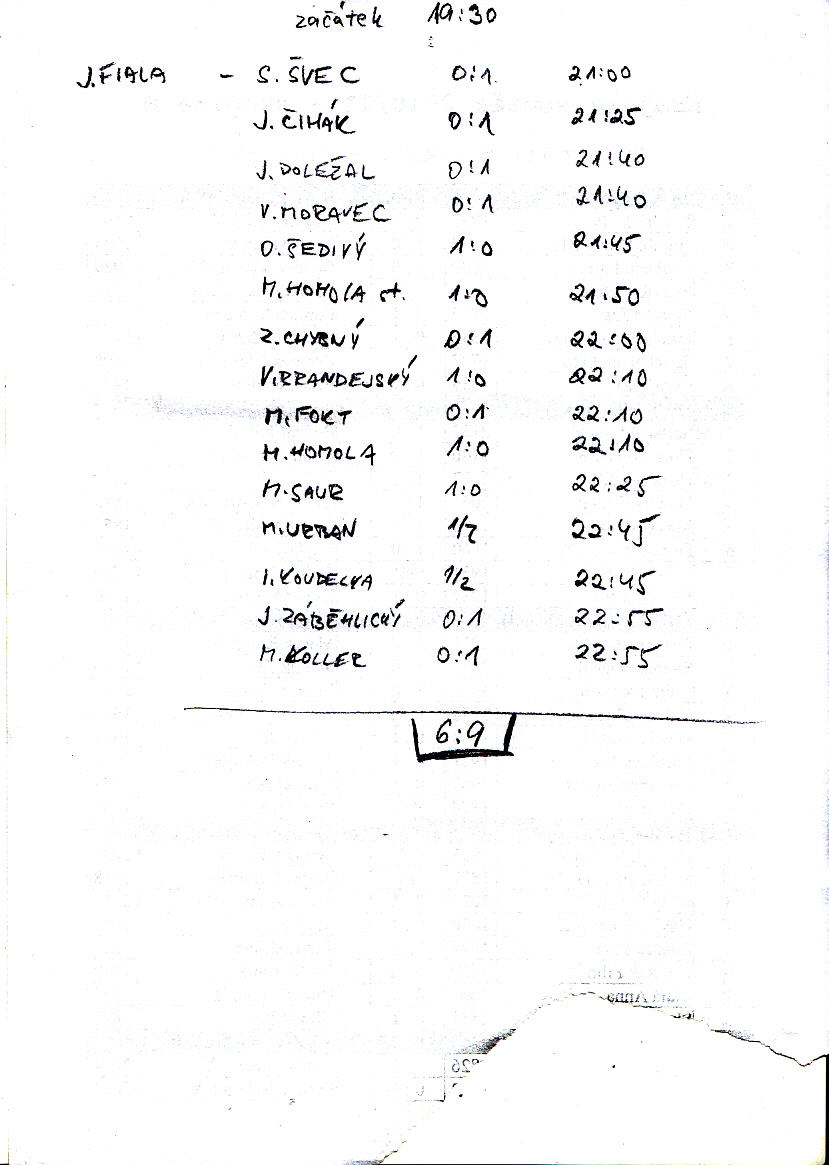 začátek 19:30
J. FIALA - S. ŠVEC 0:1 21:00
J. ČIHÁK 0:1 21:25
J. DOLEŽAL 0:1 21:40
V. MORAVEC 0:1 21:40
O. ŠEDIVÝ 1:0 21:45
M. HOMOLA st. 1:0 21:50
Z. CHYBNÝ 0:1 22:00
V. BRANDEJSKÝ 1:0 22:10
M. FOKT 0:1 22:10
M. HOMOLA 1:0 22:10
M. SAUR 1:0 22:25
M. URBAN 1/2 22:45
I. KOUDELKA 1/2 22:45
J. ZÁBĚHLICKÝ 0:1 22:55
M. KOLLER 0:1 22:55
6:9